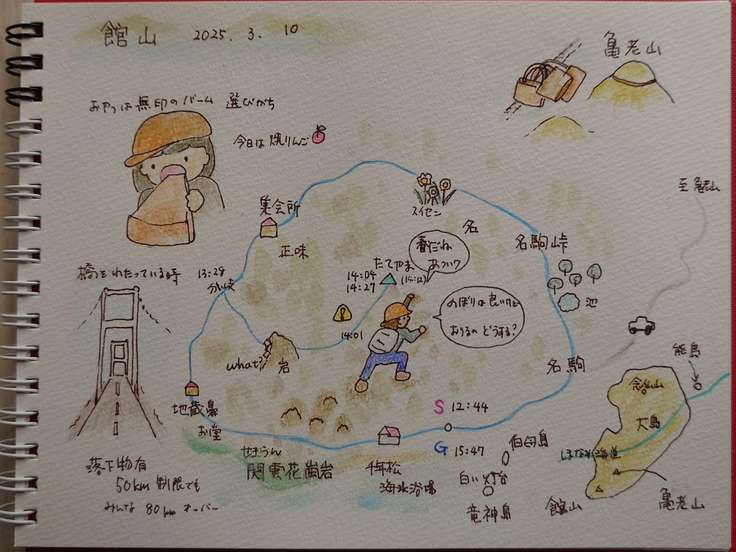 館山 2025.3.10
亀老山
おやつは無印のバーム 選びがち
今日は焼りんご
至亀老山
集会所
スイセン
名
正味
名駒峠
春だね
あつい?
たてやま
(141.2)
14:04
14:27
池
橋をわたっている時
13:29
分岐
のぼりは良いけど
ありるの どうする?
14:01
what?
岩
能島
名駒
念仏山
大島
地蔵鼻
お堂
S 12:44
G 15:47
千年松
海水浴場
花崗岩
伯母島
白い灯台
竜神島
しまなみ海道
館山
亀老山
落下物有
50km制限でも
みんな 80kmオーバー